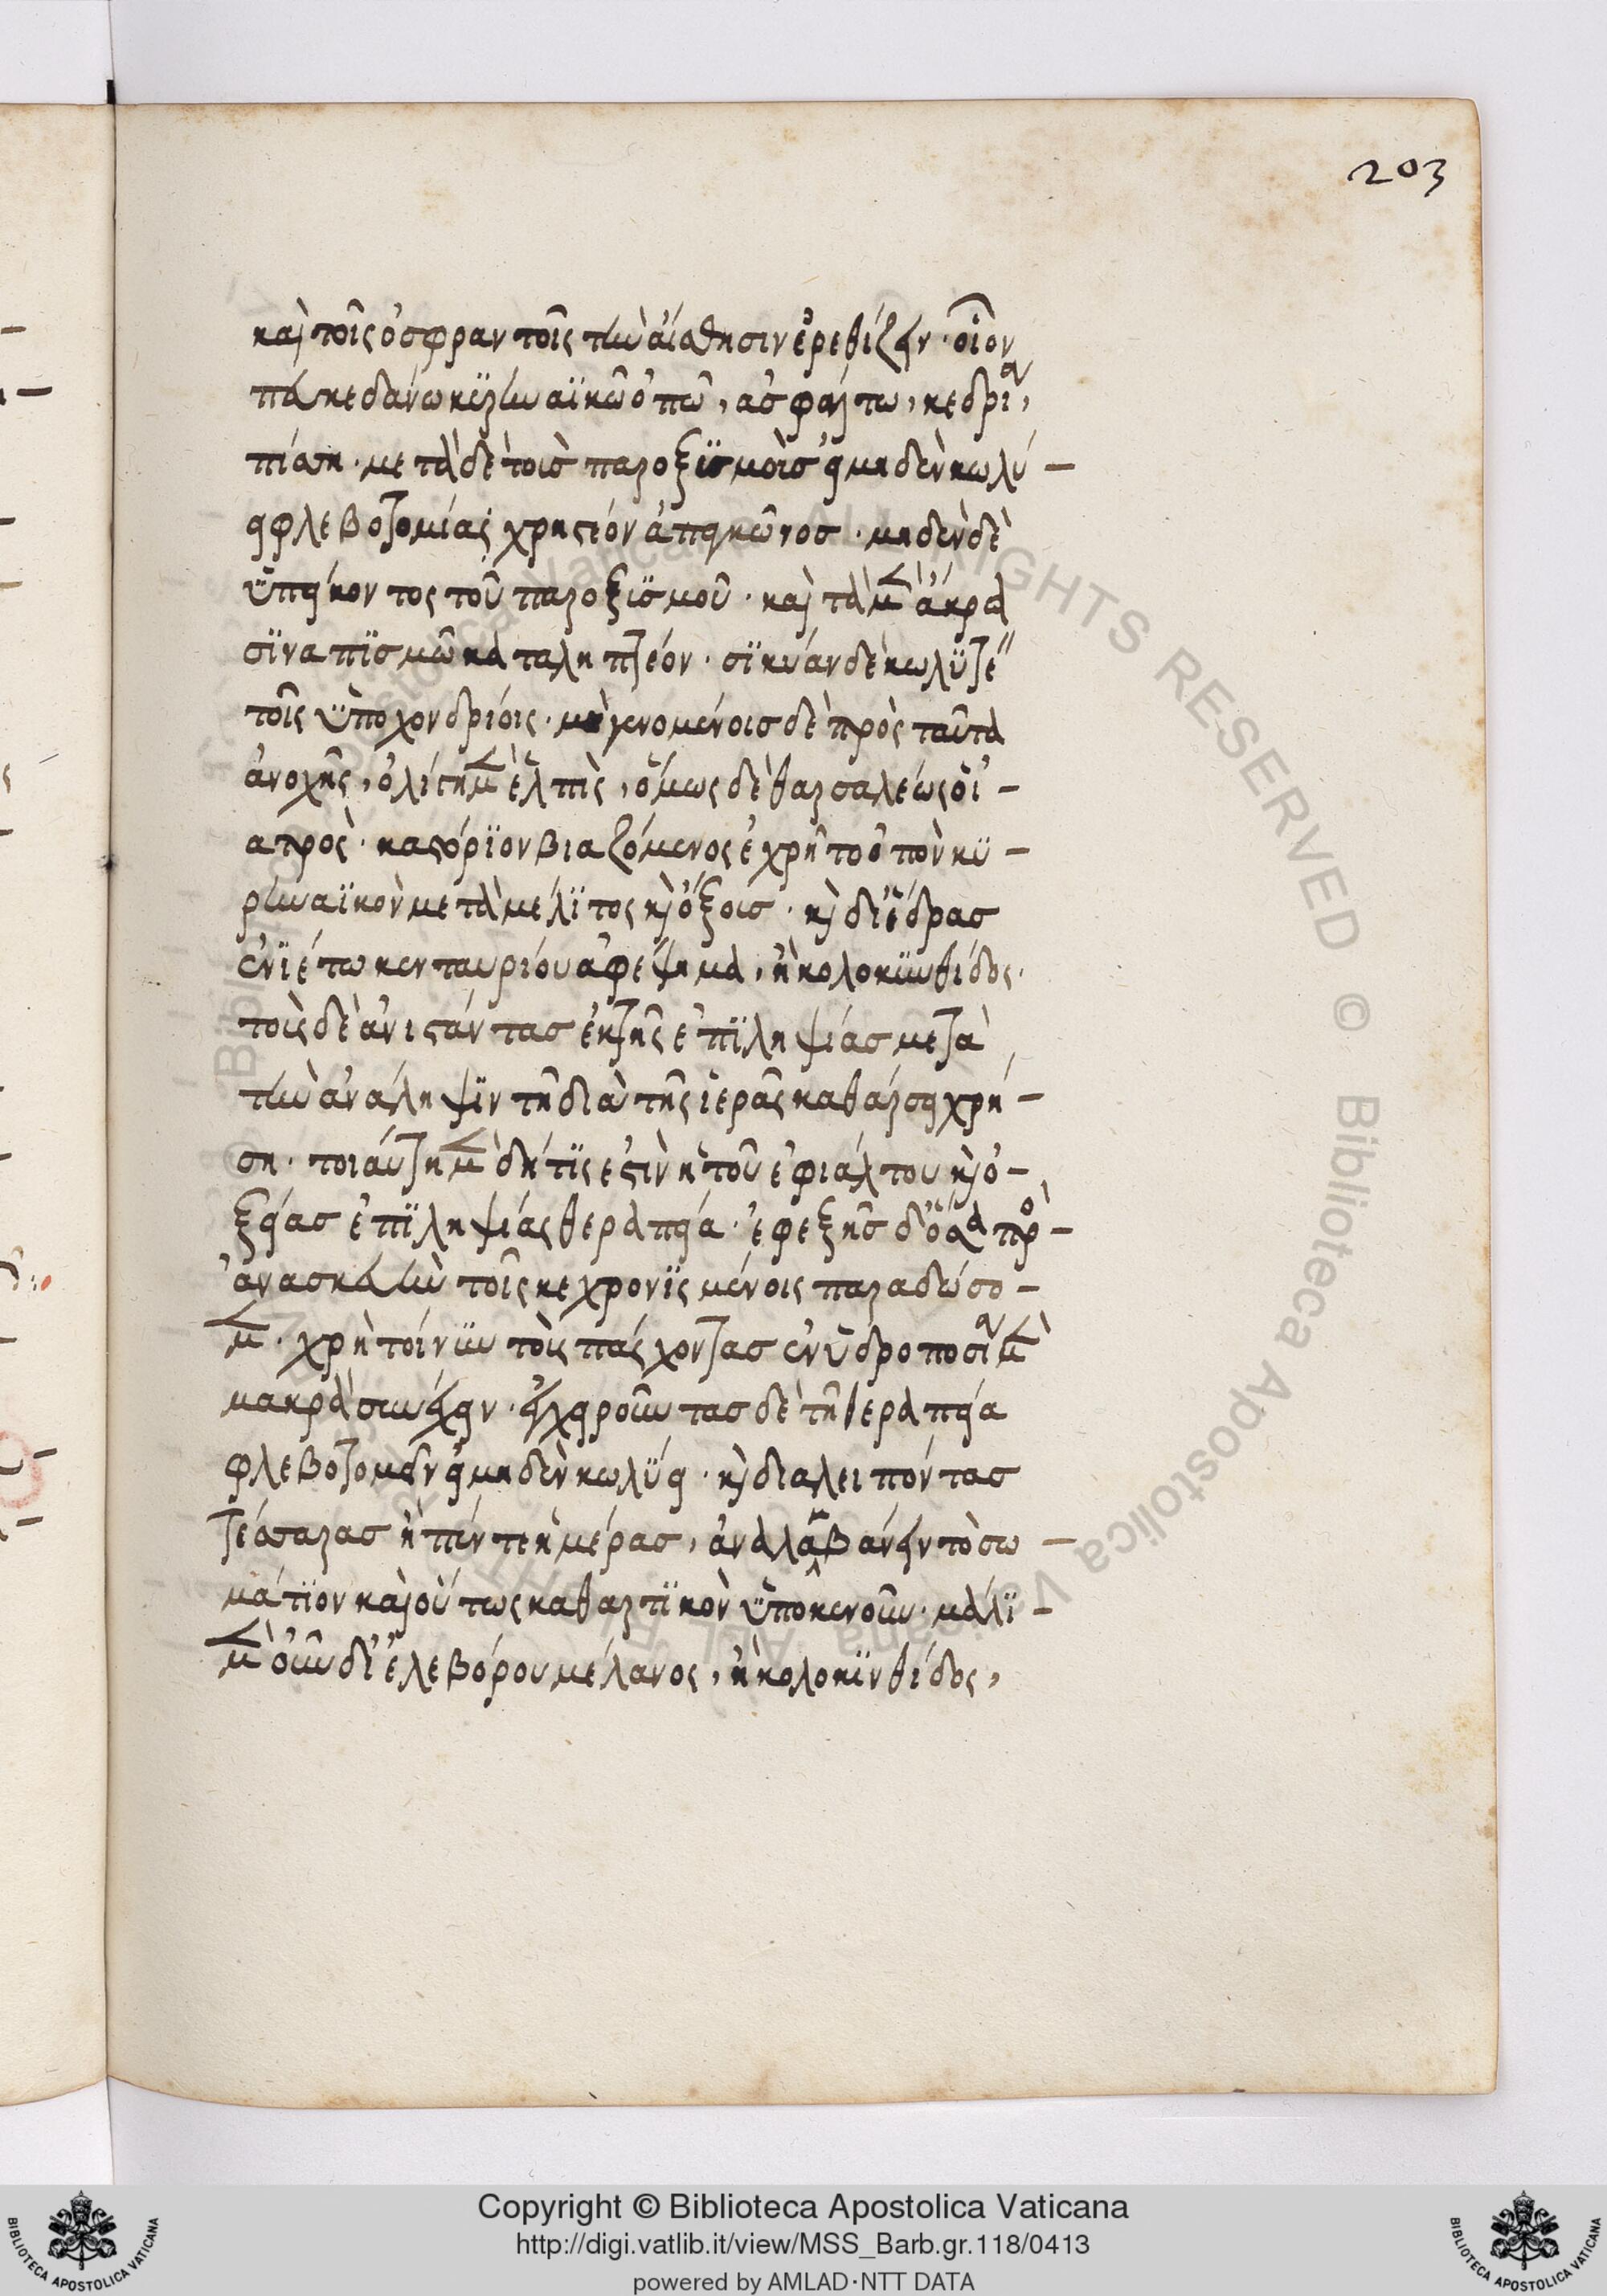 203
καὶ τοῖς ὀσφραντοῖς τὴν ἀίσθησιν ἐρεθίζειν · οἷον
πευκεδάνω κϋρηναϊκῶ ὀπῶ, ἀσφάλτω, κεδρίαν,
πίσση · μετὰ δὲ τοὺσ παροξϋσμοὺσ εἰ μηδὲν κωλύ –
ει φλεβοτομίαις χρηστέον ἀπ' ἀγκῶνοσ · μηδὲν δὲ
ὑπείκοντος τοῦ παροξϋσμοῦ · καὶ τὰ μὲν ἄκρα
σϊναπϊσμῶ καταληπτέον · σϊκύαν δὲ κωλϋτέον
τοῖς ὑποχονδρίοις · μὴ γενομένοισ δὲ πρὸς ταῦτα
ἀνοχῆς, ὀλίγη μὲν ἐλπὶς, ὅμως δὲ θαρσαλέως ὁ ἰ –
ατρὸς · καστόρϊον βιαζόμενος ἐχρῆτο ὀπὸν κϋ –
ρηναϊκὸν μετὰ μέλϊτος καὶ ὄξοισ · καὶ δι' ἕδρασ
ἐνϊέτω κενταυρίου ἀφέψημα, ἢ κολοκϋνθίδος ·
τοὺς δὲ ἀνιστάντασ ἐκ τῆς ἐπϊληψίασ μετὰ
τὴν ἀνάληψϊν τῆ διὰ τῆς ἱερᾶς καθάρσει χρή –
ση · τοιάυτη μὲν δή τϊς ἐστὶν ἡ τοῦ ἐφιάλτου καὶ ὀ –
ξείασ ἐπϊληψίας θεραπεία · ἐφεξῆσ δ' ὅσα πρὸς –
ἀνασκευὴν τοῖς κεχρονϊσμένοις παραδώσο –
μεν · χρὴ τοίνϋν τοὺς πάσχοντασ ἐν ὑδροποσίαν μὲν
μακρὰ συνέχειν · ἐγχειροῦντασ δὲ τῆ θεραπεία
φλεβοτομεῖν εἰ μηδὲν κωλϋει · καὶ διαλειπόντασ
τέσσαρασ ἢ πέντε ἡμέρασ, ἀναλαμβάνειν τὸ σω –
μάτϊον καὶ ὅυτως καθαρτϊκὸν ὑποκενοῦν · μάλϊ –
μὲν οὖν δι' ἐλεβόρου μέλανος, ἢ κολοκϊνθίδος,
Copyright © Biblioteca Apostolica Vaticana
http://digi.vatlib.it/view/MSS_Barb.gr.118/0413
powered by AMLAD·NTT DATA
BIBLIOTECA APOSTOLICA VATICANA
BIBLIOTECA APOSTOLICA VATICANA